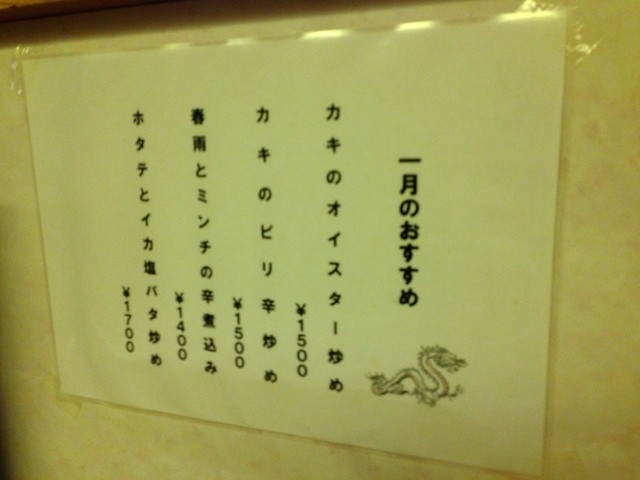 一月のおすすめ
カキのオイスター炒め
¥1500
カキのピリ辛炒め
¥1500
春雨とミンチの辛煮込み
¥1400
ホタテとイカ塩バタ炒め
¥1700